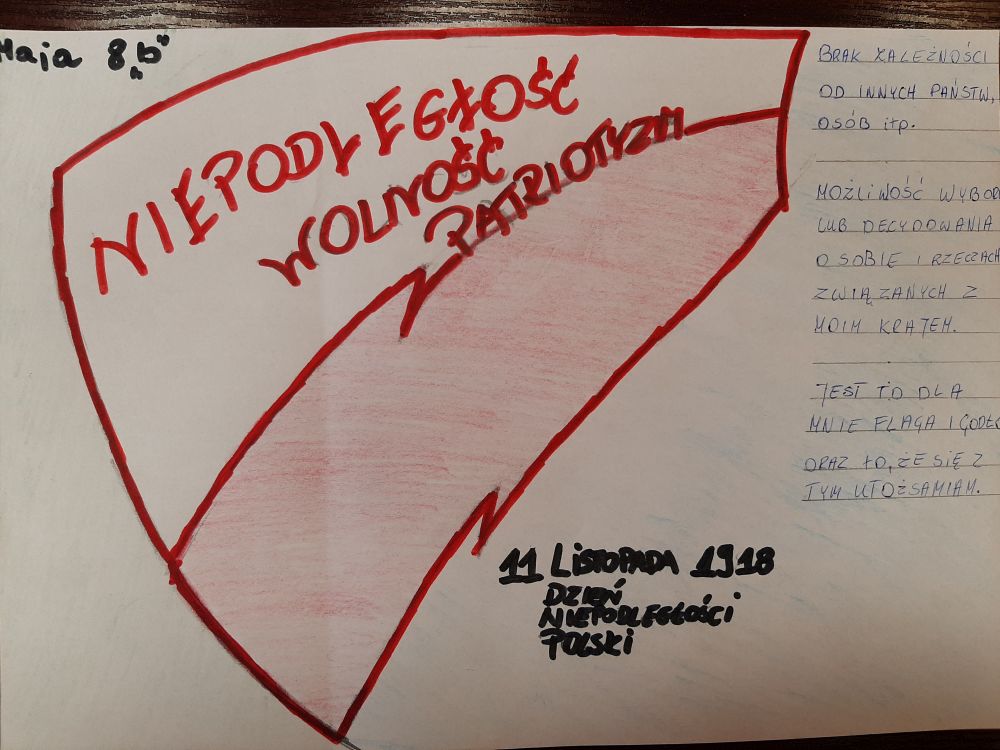 Maja 8„b"
NIEPODLEGŁOŚĆ
WOLNOŚĆ
PATRIOTYZM
BRAK ZALEŻNOŚCI
OD INNYCH PAŃSTW,
OSÓB itp.
MOŻLIWOŚĆ WYBOR
LUB DECYDOWANIA
O SOBIE I RZECZACH
ZWIĄZANYCH Z
MOIM KRAJEM.
JEST TO DLA
MNIE FLAGA I GODŁO
ORAZ TO, ŻE SIĘ Z
TYM UTOŻSAMIAM.
11 LISTOPADA 1918
DZIEŃ
NIEPODLEGŁOŚCI
POLSKI